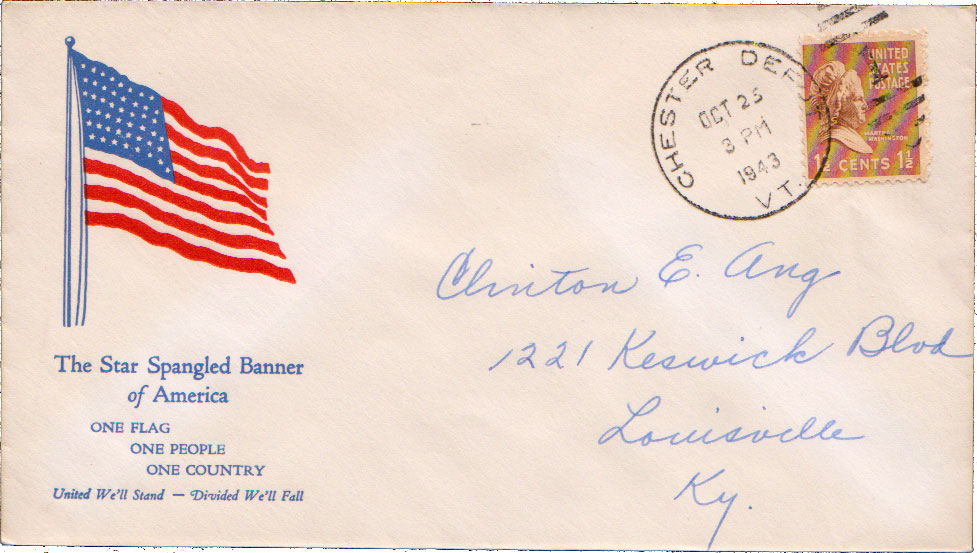 CHESTER DEPOT
OCT 25
3 PM
1943
VT.
UNITED
STATES
POSTAGE
MARTHA
WASHINGTON
1½ CENTS 1½
Clinton E. Ang
1221 Keswick Blvd
Louisville
Ky.
The Star Spangled Banner
of America
ONE FLAG
ONE PEOPLE
ONE COUNTRY
United We'll Stand — Divided We'll Fall